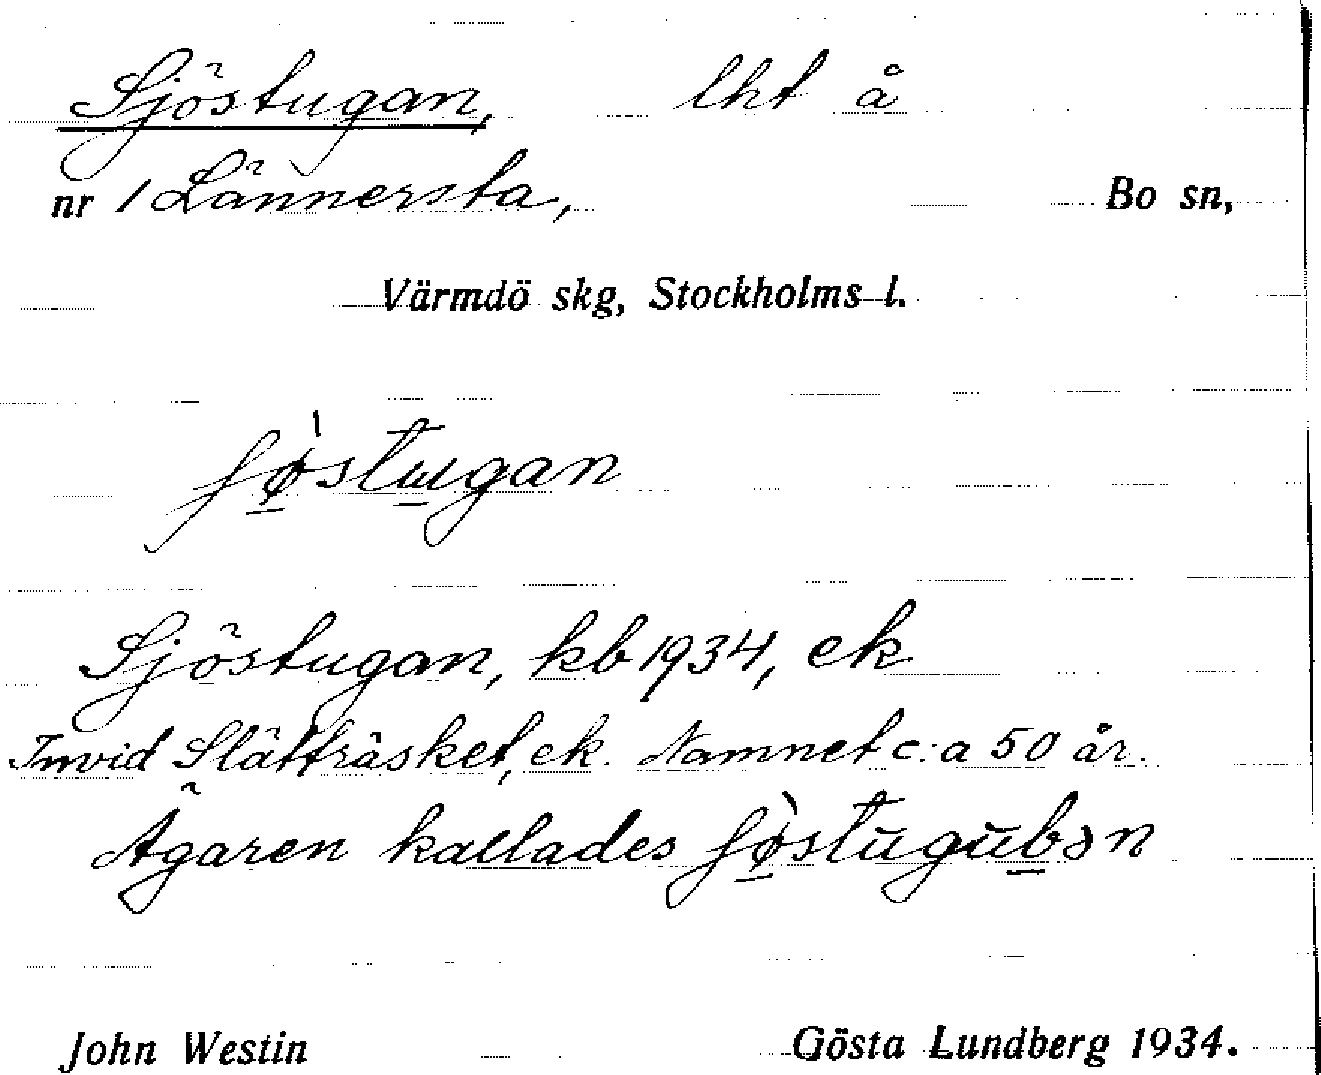 Sjöstugan, lht å
nr 1 Lännersta, Bo sn,
Värmdö skg, Stockholms l.
ʃø̀stugan
Sjöstugan, kb 1934, ek
Invid Slätträsket, ek. Namnet c:a 50 år.
Ägaren kallades ʃø̀stugubən
John Westin Gösta Lundberg 1934.